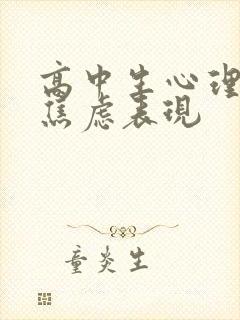 高中生心理
焦虑表现
童炎生